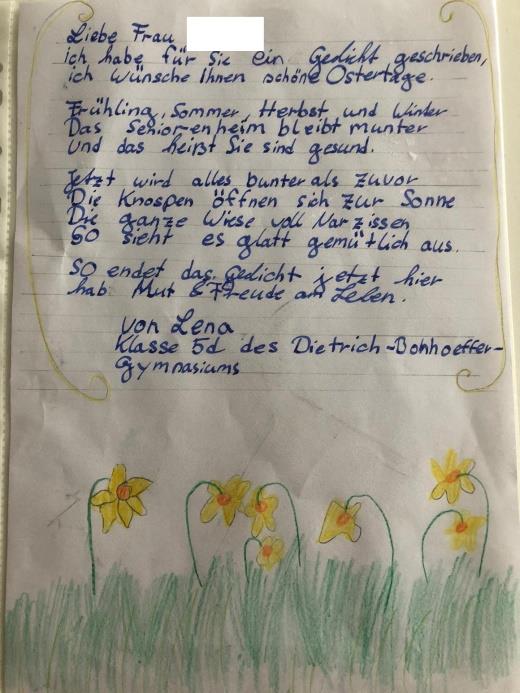 Liebe Frau
ich habe für Sie ein Gedicht geschrieben,
ich wünsche Ihnen schöne Ostertage.
Frühling, Sommer, Herbst und Winter
Das Seniorenheim bleibt munter
und das heißt Sie sind gesund.
Jetzt wird alles bunter als zuvor
Die Knospen öffnen sich zur Sonne
Die ganze Wiese voll Narzissen
So sieht es glatt gemütlich aus.
So endet das Gedicht jetzt hier
hab Mut & Freude am Leben.
von Lena
Klasse 5d des Dietrich-Bonhoeffer-
Gymnasiums